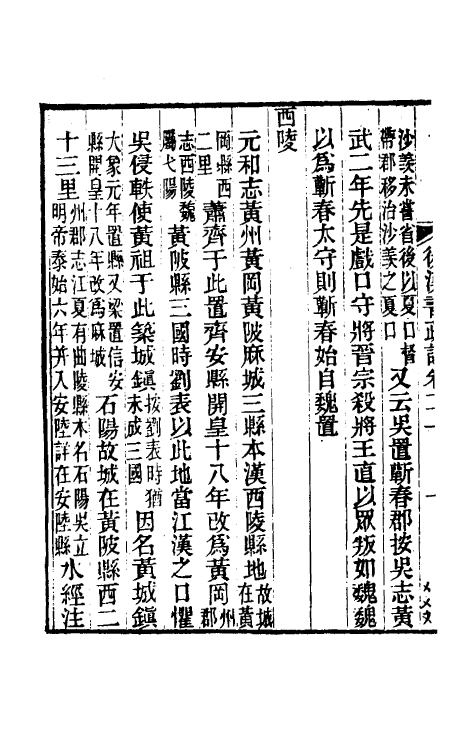 後漢書疏證卷二十一　一
沙羨未嘗省後以夏口督帶郡移治沙羨之夏口又云吳置蘄春郡按吳志黃
武二年先是戲口守將晉宗殺將王直以眾叛如魏魏
以為蘄春太守則蘄春始自魏置
西陵
元和志黃州黃岡黃陂麻城三縣本漢西陵縣地故城在黃
岡縣西二里蕭齊于此置齊安縣開皇十八年改為黃岡州郡
志西陵魏屬弋陽黃陂縣三國時劉表以此地當江漢之口懼
吳侵軼使黃祖于此築城鎮按劉表時猶未成三國因名黃城鎮
大象元年置縣又梁置信安縣開皇十八年改為麻城石陽故城在黃陂縣西二
十三里州郡志江夏有曲陵縣本名石陽吳立明帝泰始六年并入安陸詳在安陸縣水經注